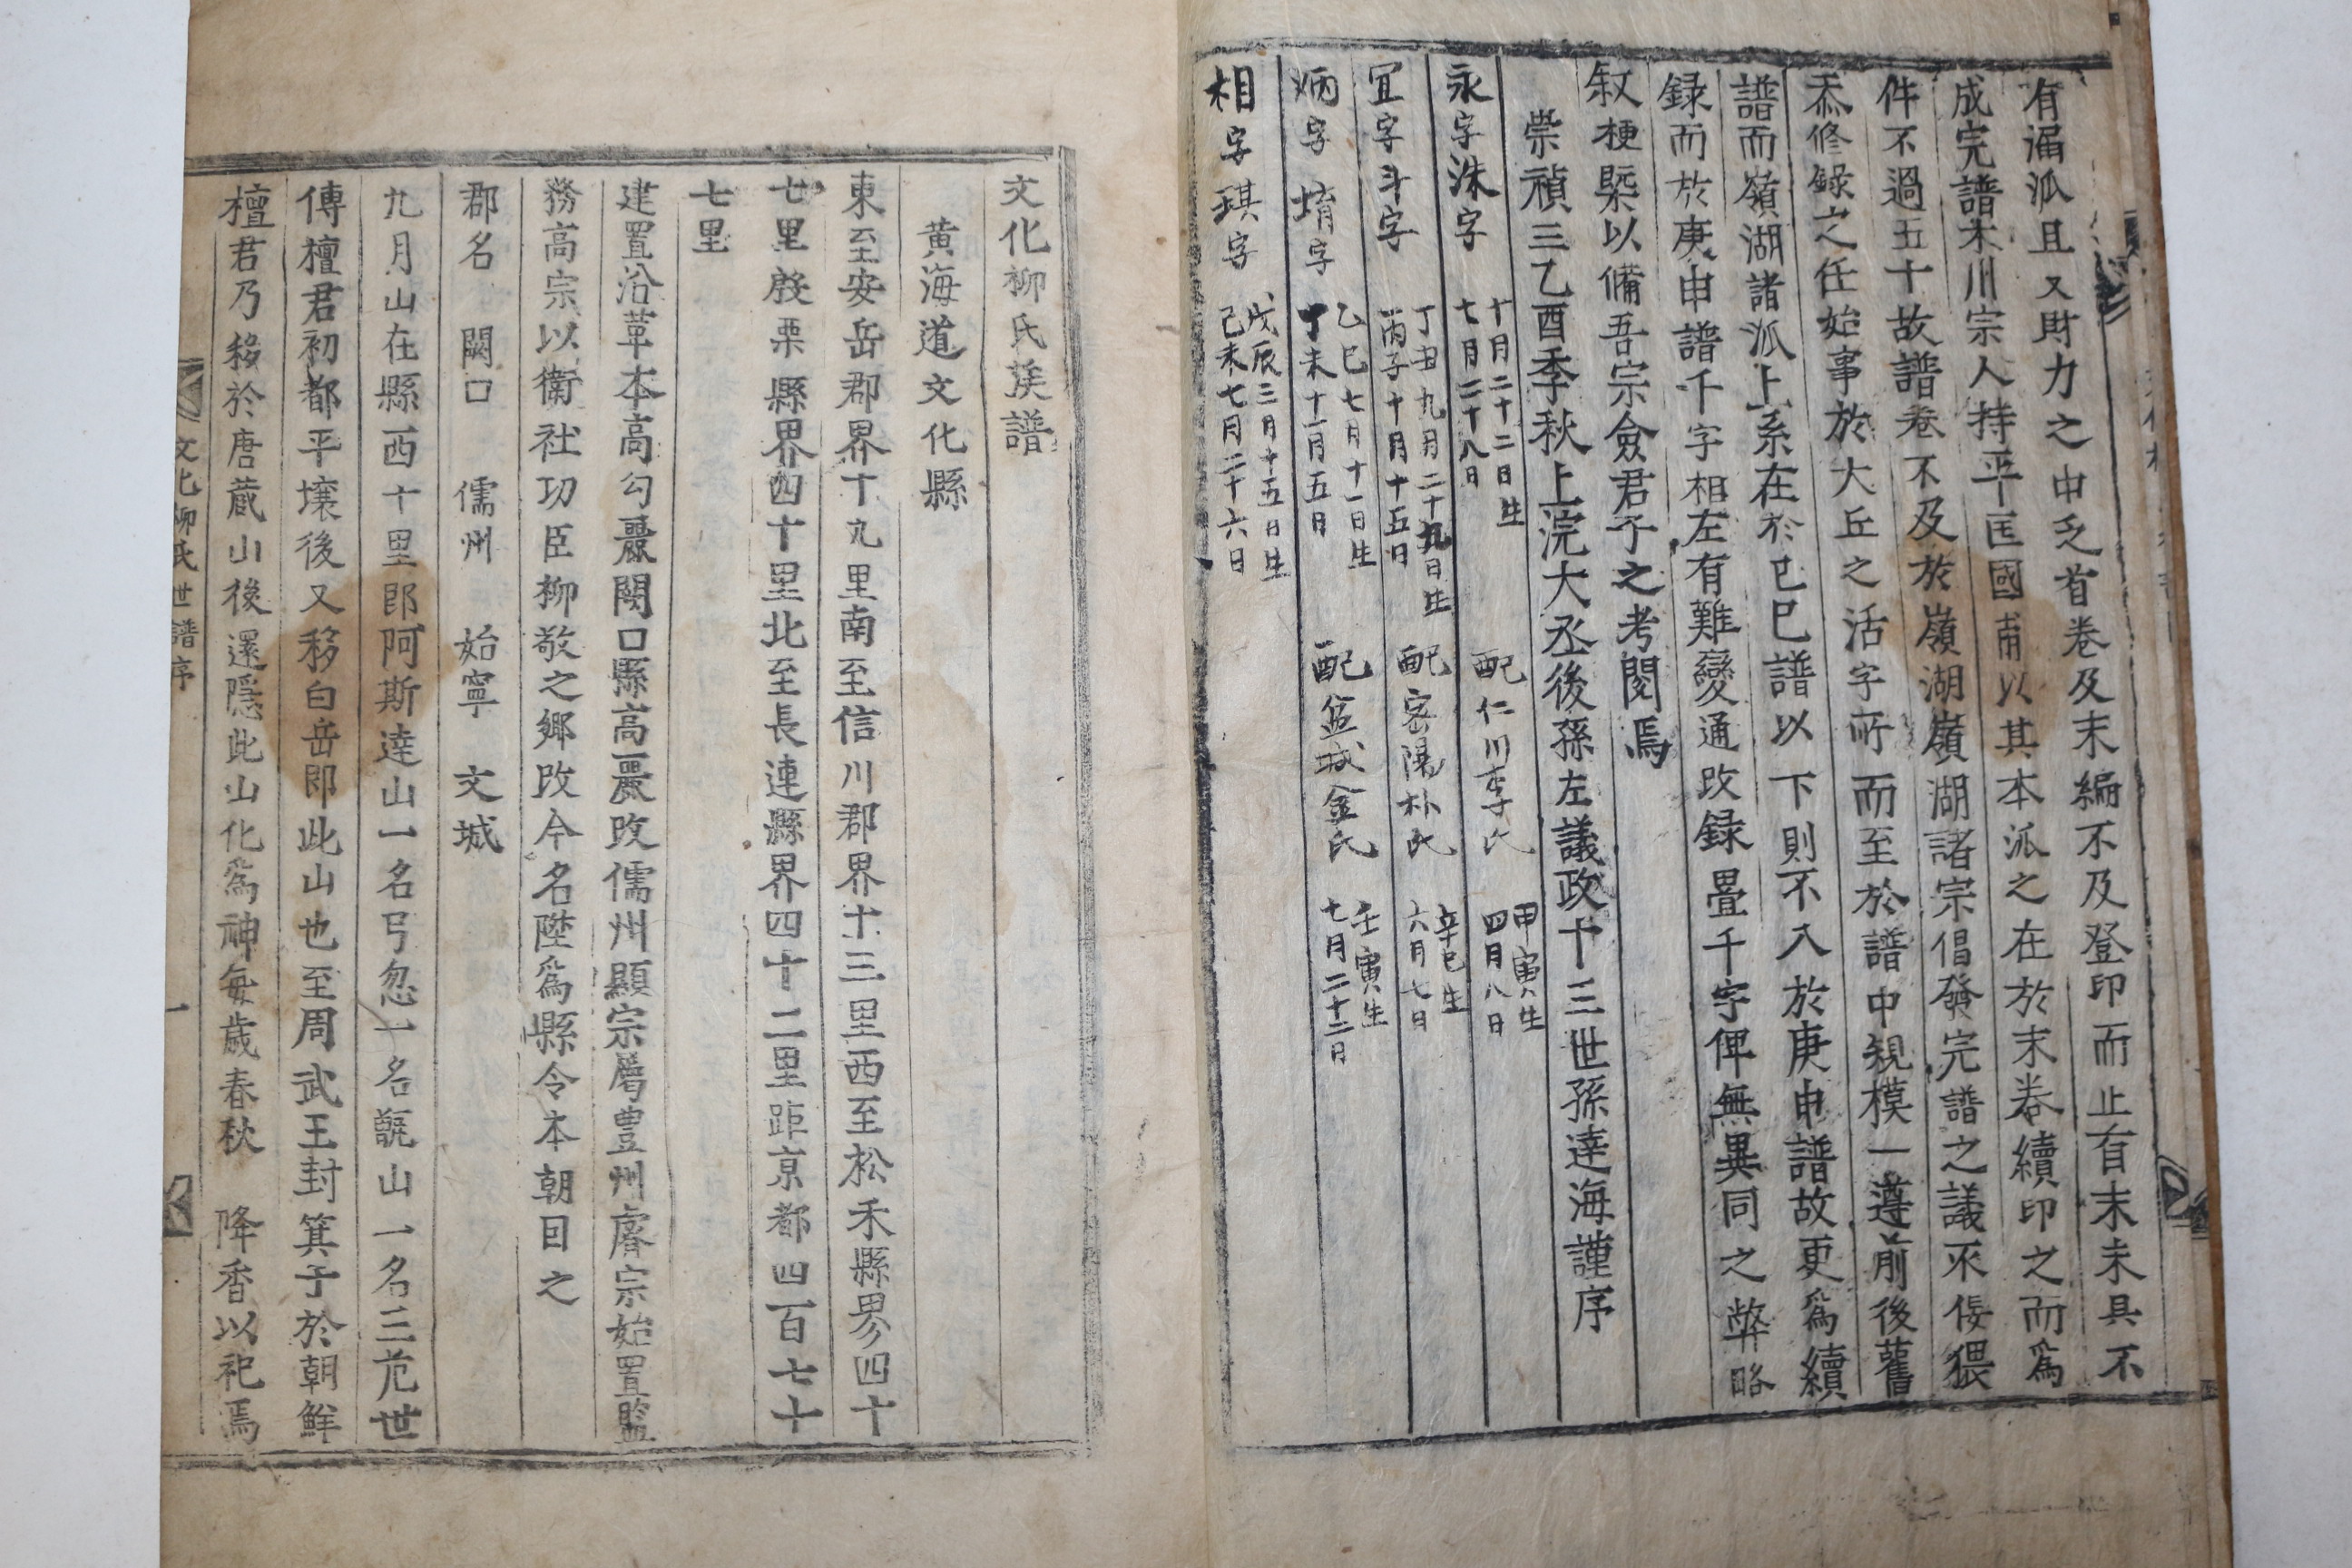 有漏派且又財力之中乏首卷及末編不及登印而止有末未具不
成完譜木川宗人持平匡國甫以其本派之在於末卷續印之而爲
件不過五十故譜卷不及於嶺湖嶺湖諸宗倡發完譜之議不佞猥
忝修錄之任始事於大丘之活字所而至於譜中規模一遵前後舊
譜而嶺湖諸派上系在於己巳譜以下則不入於庚申譜故更爲續
録而於庚申譜千字相左有難變通改録疊千字俾無異同之弊略
叙梗槩以備吾宗僉君子之考閱焉
崇禎三乙酉季秋上浣大丞後孫左議政十三世孫達海謹序
永字洙字 十月二十二日生 七月二十八日 配仁川李氏 甲寅生 四月八日
宜字斗字 丁丑九月二十九日生 丙子十月十五日 配密陽朴氏 辛巳生 六月七日
炳字堉字 乙巳七月十一日生 丁未十一月五日 配盆城金氏 壬寅生 七月二十二日
相字琪字 戊辰三月十五日生 己未七月二十六日
文化柳氏族譜
黄海道文化縣
東至安岳郡界十九里南至信川郡界十三里西至松禾縣界四十
七里殷栗縣界四十里北至長連縣界四十二里距京都四百七十
七里
建置沿革本高勾麗闕口縣高麗改儒州顯宗屬豊州睿宗始置監
務高宗以衛社功臣柳敬之鄉改今名陞爲縣令本朝因之
郡名 闕口 儒州 始寧 文城
九月山在縣西十里郎阿斯達山一名弓忽一名甑山一名三危世
傳檀君初都平壤後又移白岳郎此山也至周武王封箕子於朝鮮
檀君乃移於唐蔵山後還隱此山化爲神每歲春秋 降香以祀焉
文化柳氏世譜序 一